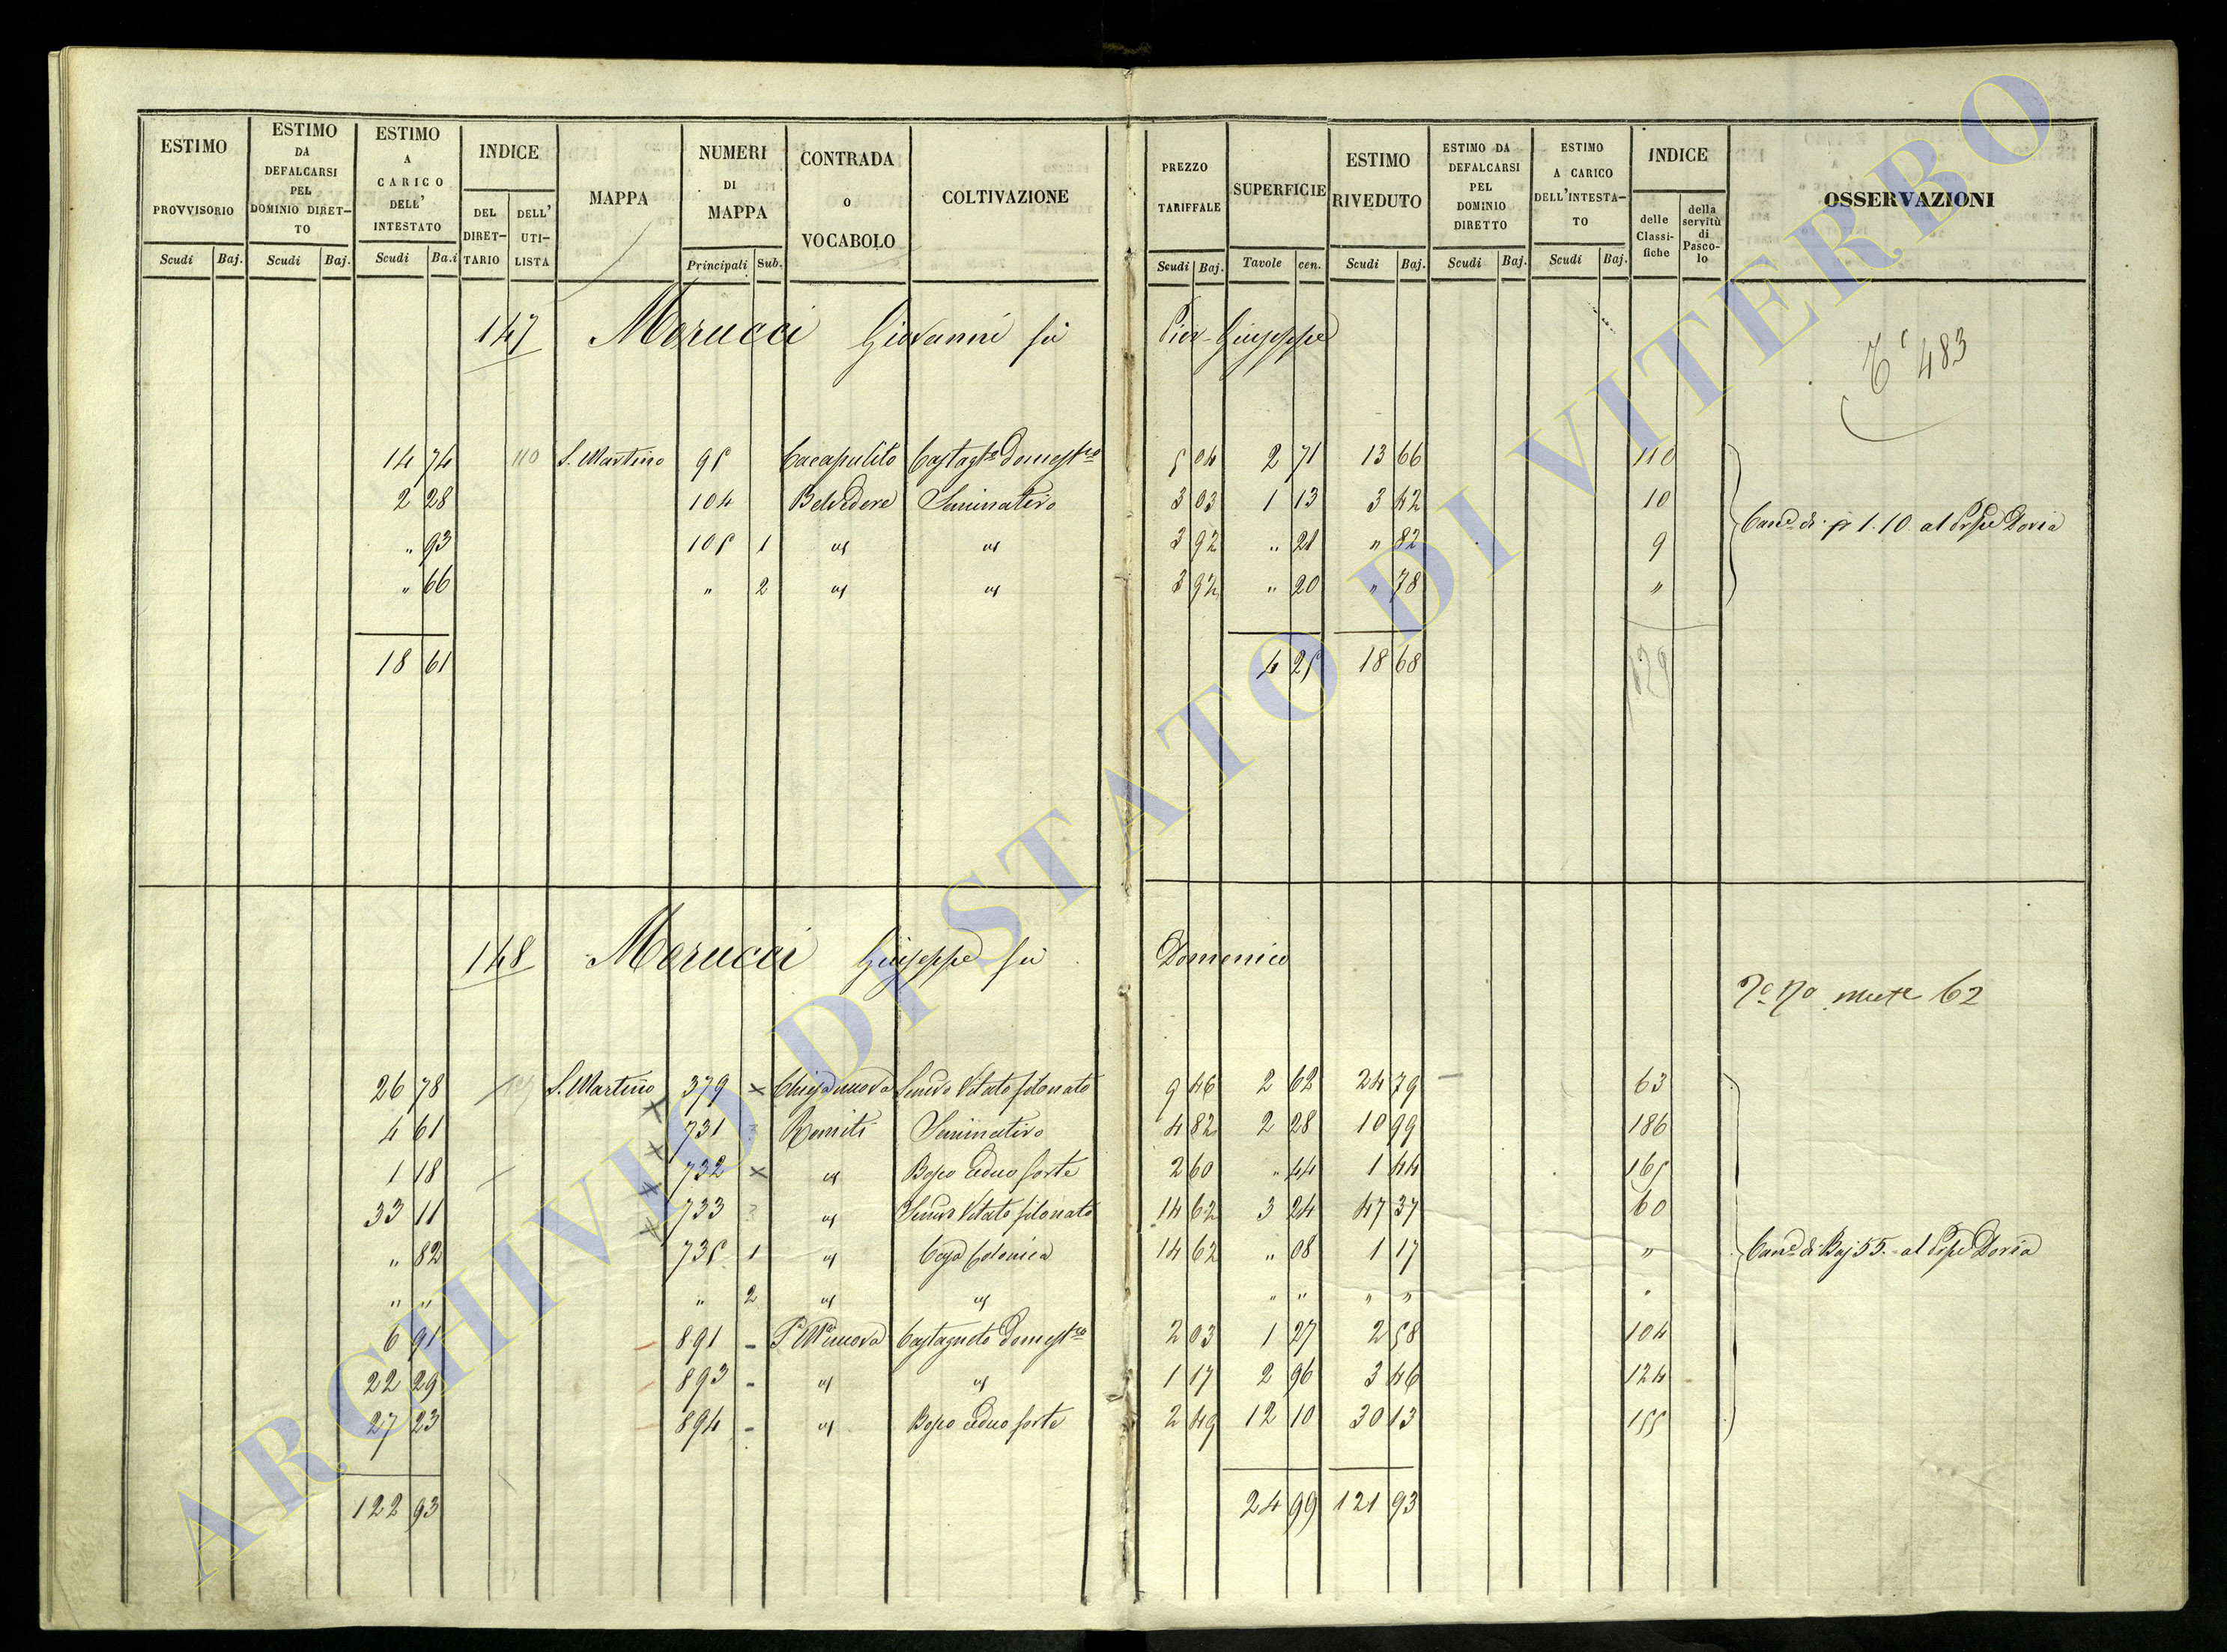 ESTIMO PROVVISORIO Scudi Baj.
ESTIMO DA DEFALCARSI PEL DOMINIO DIRET-TO Scudi Baj.
ESTIMO A CARICO DELL' INTESTATO Scudi Ba.i
INDICE DEL DIRET-TARIO DELL' UTI-LISTA
MAPPA
NUMERI DI MAPPA Principali Sub.
CONTRADA O VOCABOLO
COLTIVAZIONE
PREZZO TARIFFALE Scudi Baj.
SUPERFICIE Tavole cen.
ESTIMO RIVEDUTO Scudi Baj.
ESTIMO DA DEFALCARSI PEL DOMINIO DIRETTO Scudi Baj.
ESTIMO A CARICO DELL'INTESTA-TO Scudi Baj.
INDICE delle Classi-fiche della servitù di Pasco-lo
OSSERVAZIONI
147 Morucci Giovanni fù Pier-Giuseppe
483
14 74 110 S. Martino 95 Cacapulito Castagto Domestco 5 04 2 71 13 66 110
2 28 104 Belvedere Seminativo 3 03 1 13 3 42 10
Cane di 1.10 al Prpe Doria
" 93 105 1 " " 3 92 " 21 " 82 9
" 66 " 2 " " 3 92 " 20 " 78 "
18 61 4 25 18 68
129
148 Morucci Giuseppe fù Domenico
62
26 78 S. Martino 379 x Chiesa nuova Semvo Vitato filonato 9 46 2 62 24 79 63
4 61 731 Romiti Seminativo 4 82 2 28 10 99 186
1 18 732 x " Bosco Ceduo forte 2 60 " 44 1 44 165
33 11 733 " Semvo Vitato filonato 14 62 3 24 47 37 60
" 82 735 1 " Casa Colonica 14 62 " 08 1 17 "
Cane di Baj 55. al Prpe Doria
" " " 2 " " " " " " "
6 91 891 - Castagneto Domestco 2 03 1 27 2 58 104
22 29 893 - " " 1 17 2 96 3 46 124
27 23 894 - " Bosco Ceduo forte 2 49 12 10 30 13 155
122 93 24 99 121 93
ARCHIVIO DI STATO DI VITERBO